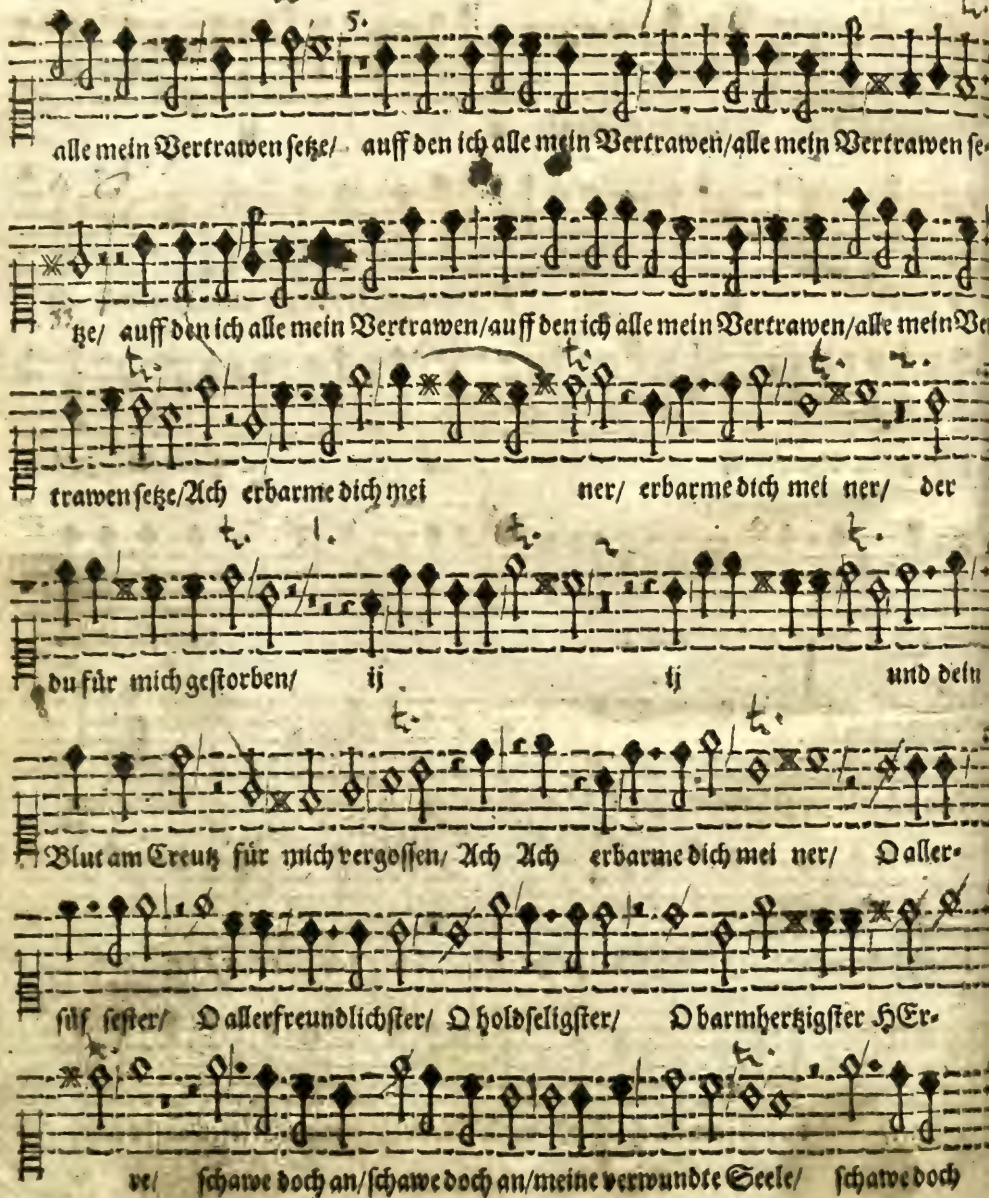 5.
alle mein Vertrawen setze/ auff den ich alle mein Vertrawen/alle mein Vertrawen se-
tze/ auff den ich alle mein Vertrawen/auff den ich alle mein Vertrawen/alle mein Ver
t. t. t.
trawen setze/Ach erbarme dich mei ner/ erbarme dich mei ner/ der
t. 1. t. t.
du für mich gestorben/ ij ij und dein
t. t.
Blut am Creutz für mich vergossen/ Ach Ach erbarme dich mei ner/ O aller-
süs sester/ O allerfreundlichster/ O holdseligster/ O barmhertzigster HEr-
t. t.
re/ schawe doch an/schawe doch an/meine verwundte Seele/ schawe doch